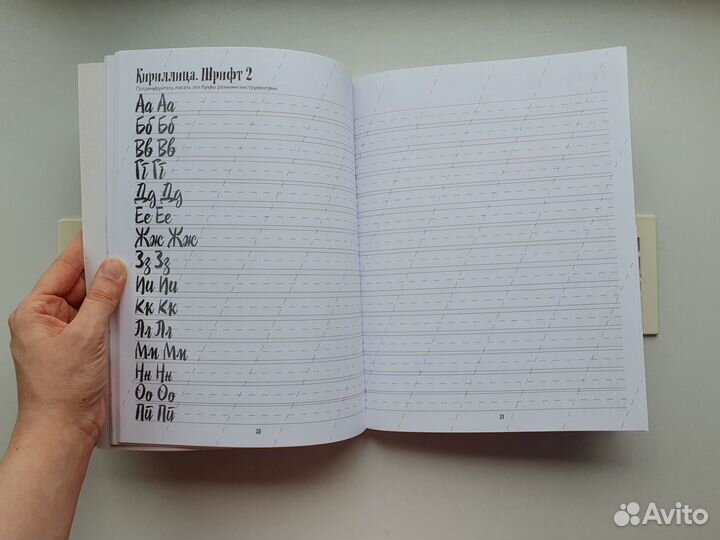 Кириллица. Шрифт 2
Потренируйтесь писать эти буквы разными инструментами.
Аа Аа
Бб Бб
Вв Вв
Гг Гг
Дд Дд
Ее Ее
Жж Жж
Зз Зз
Ии Ии
Кк Кк
Лл Лл
Мм Мм
Нн Нн
Оо Оо
Пп Пп
30
31
Avito